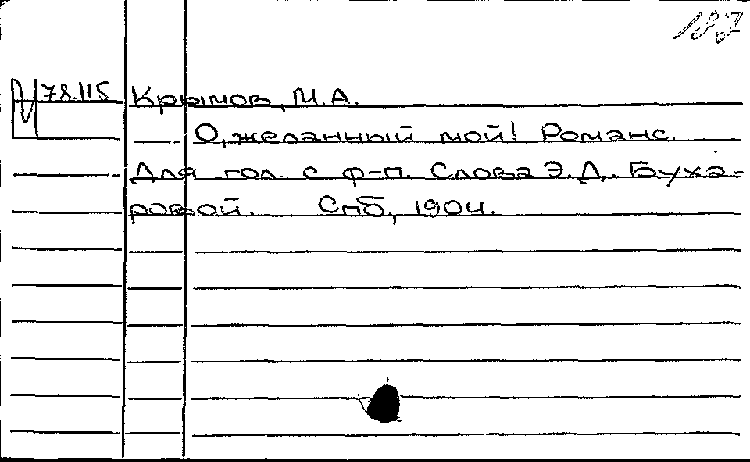 187
78.115 Крымов, М.А.
О, желанный мой! Романс.
Для гол. с ф-п. Слова Э.Д. Буха-
ровой. Спб., 1904.